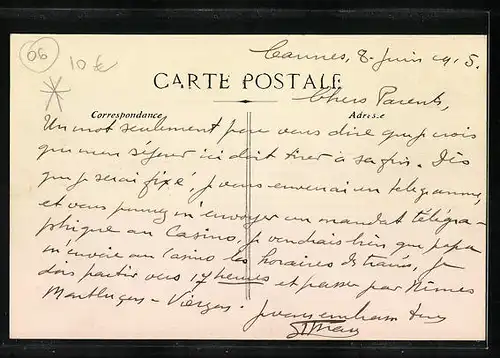 06
10 €
Cannes, 8 Juin 1915.
CARTE POSTALE
Chers Parents,
Correspondance
Adresse
Un mot seulement pour vous dire que je crois
que mon séjour ici doit tirer à sa fin. Dès
que je serai fixé, je vous enverrai un télégramme,
et vous pourrez m'envoyer un mandat télégra-
phique au Casino, je voudrais bien que papa
m'envoie au Casino les horaires de trains, je
dois partir vers 17 heures et passer par Nîmes
Je vous embrasse tous